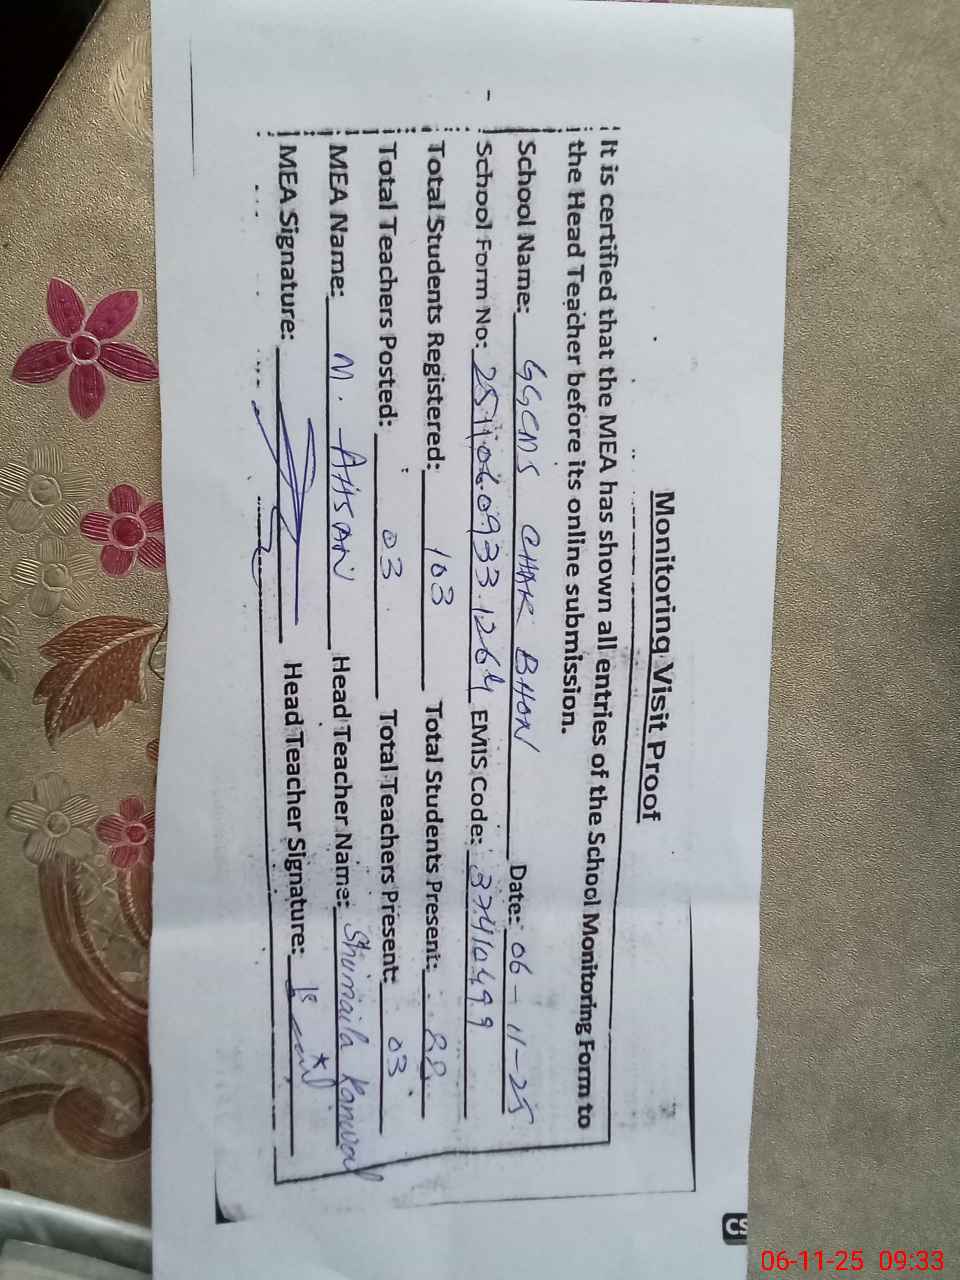 Monitoring Visit Proof
It is certified that the MEA has shown all entries of the School Monitoring Form to
the Head Teacher before its online submission.
School Name: GGCMS CHAK BHON Date: 06-11-25
School Form No: 25110609331264 EMIS Code: 37410499
Total Students Registered: 103 Total Students Present: 88
Total Teachers Posted: 03 Total Teachers Present: 03
MEA Name: M. AHSAN Head Teacher Name: Shumaila Kanwal
MEA Signature: Head Teacher Signature:
CS
06-11-25 09:33